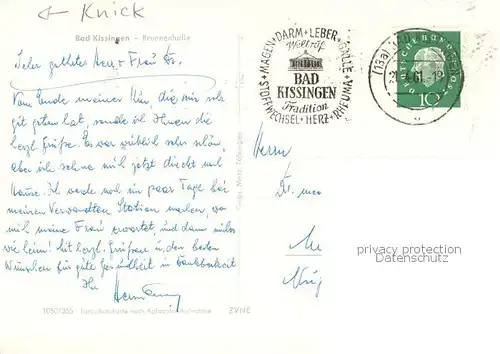 ← Knick
Bad Kissingen - Brunnenhalle
Sehr geehrter Herr u. Frau Dr.
Am Ende meiner Kur, die mir sehr
gut getan hat, sende ich Ihnen die
herzl. Grüße. Es war wirklich sehr schön,
aber ich sehne mich jetzt direkt nach
Hause. Ich werde noch ein paar Tage bei
meinen Verwandten Station machen, wo
mich meine Frau erwartet, und dann
wir heim! Mit herzl. Grüßen u. den besten
Wünschen für gute Gesundheit in Dankbarkeit
Ihr
MAGEN · DARM · LEBER · GALLE · RHEUMA · HERZ · STOFFWECHSEL
Weltruf
BAD
KISSINGEN
Tradition
(13a)
61
DEUTSCHE BUNDESPOST
10
Herrn
Dr. med
privacy protection
Datenschutz
Metz, Tübingen
1050/355
ZVNE